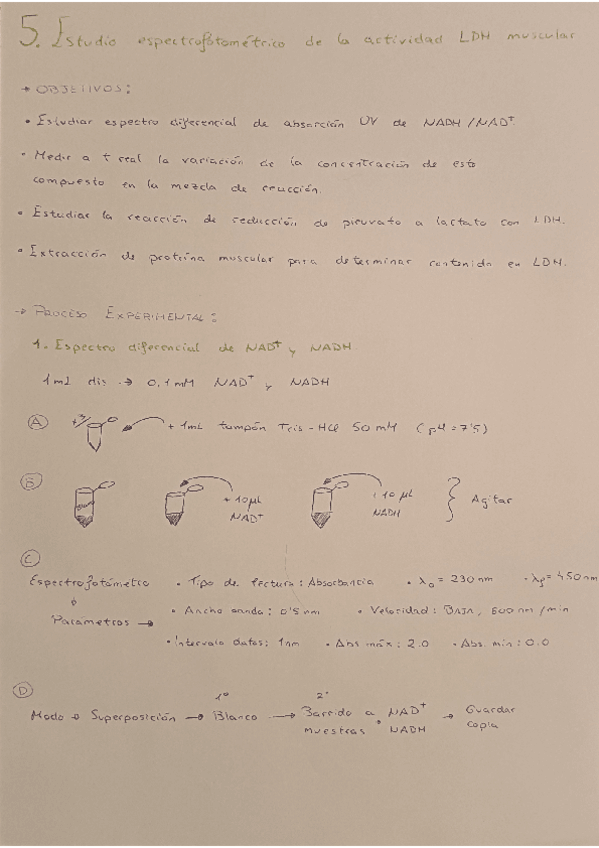 5. Estudio espectrofotométrico de la actividad LDH muscular
→ OBJETIVOS:
• Estudiar espectro diferencial de absorción UV de NADH/NAD⁺.
• Medir a t real la variación de la concentración de este
compuesto en la mezcla de reacción.
• Estudiar la reacción de reducción de piruvato a lactato con LDH.
• Extracción de proteína muscular para determinar contenido en LDH.
→ PROCESO EXPERIMENTAL:
1. Espectro diferencial de NAD⁺ y NADH.
1 mL dis → 0,1 mM NAD⁺ y NADH
A + 1mL tampón Tris-HCl 50 mM (pH = 7'5)
B + 10 µL NAD⁺ + 10 µL NADH } Agitar
C
Espectrofotómetro • Tipo de lectura: Absorbancia • λ₀ = 230 nm • λf = 450 nm
Parámetros → • Ancho banda: 0'5 nm • Velocidad: BAJA, 600 nm/min
• Intervalo datos: 1nm • Abs máx: 2.0 • Abs. mín: 0.0
D
1º 2º
Modo → Superposición → Blanco → Barrido a muestras NAD⁺ NADH → Guardar copia